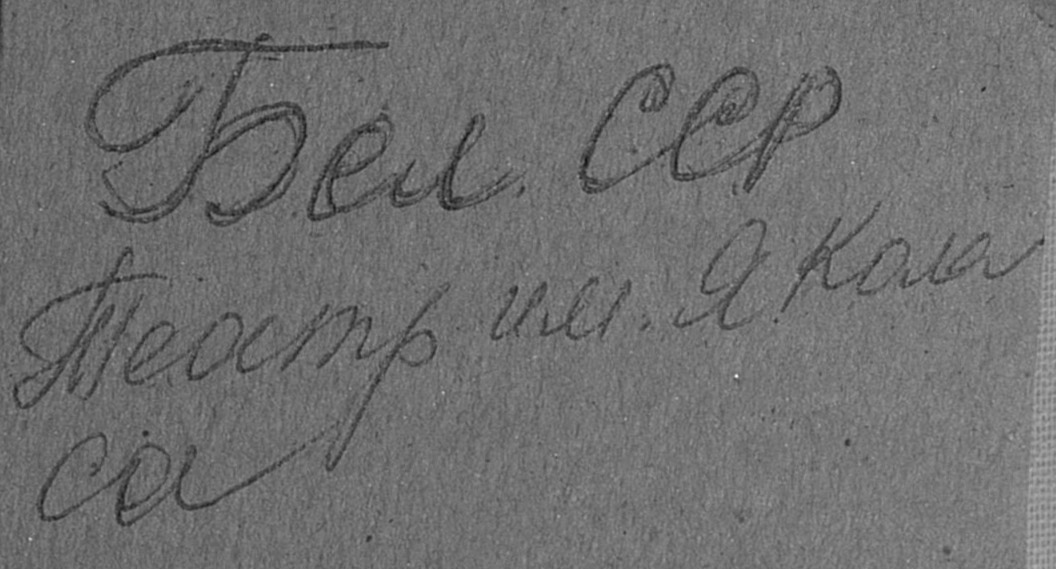 Бел. ССР
Театр им. Я. Кола
са